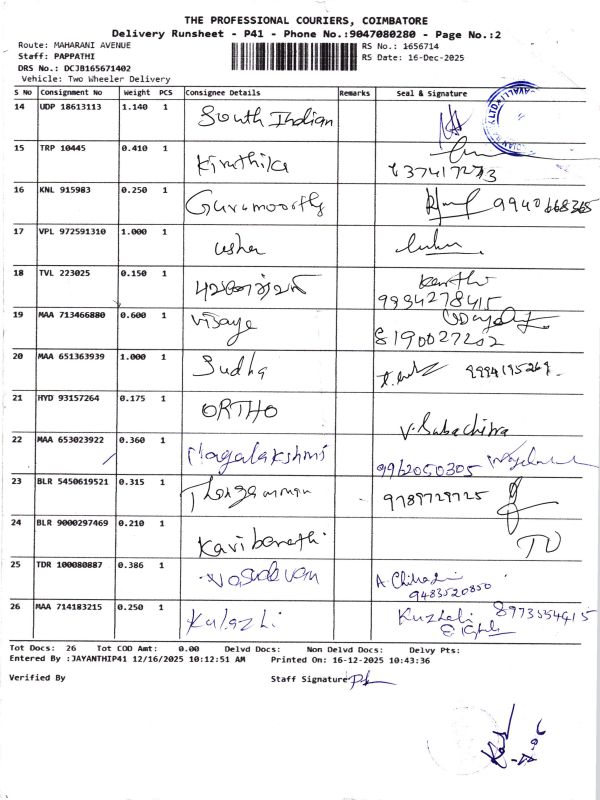 THE PROFESSIONAL COURIERS, COIMBATORE
Delivery Runsheet - P41 - Phone No.:9047080280 - Page No.:2
Route: MAHARANI AVENUE RS No.: 1656714
Staff: PAPPATHI RS Date: 16-Dec-2025
DRS No.: DCJB165671402
Vehicle: Two Wheeler Delivery
S No Consignment No Weight PCS Consignee Details Remarks Seal & Signature
14 UDP 18613113 1.140 1 South Indian
15 TRP 10445 0.410 1 Kiruthika
16 KNL 915983 0.250 1 Gurumoorthy
17 VPL 972591310 1.000 1 usha
18 TVL 223025 0.150 1 9834278415
19 MAA 713466880 0.600 1 Vijaye 8190027202
20 MAA 651363939 1.000 1 Sudha
21 HYD 93157264 0.175 1 ORTHO V. Sabachitra
22 MAA 653023922 0.360 1 Nagalakshmi 9962050305
23 BLR 5450619521 0.315 1 9789729725
24 BLR 9000297469 0.210 1 Kavibarathi
25 TDR 100080887 0.386 1 Vasudevan 9483520850
26 MAA 714183215 0.250 1 Kulazhi Kuzhali 8973554915
Tot Docs: 26 Tot COD Amt: 0.00 Delvd Docs: Non Delvd Docs: Delvy Pts:
Entered By :JAYANTHIP41 12/16/2025 10:12:51 AM Printed On: 16-12-2025 10:43:36
Verified By Staff Signature